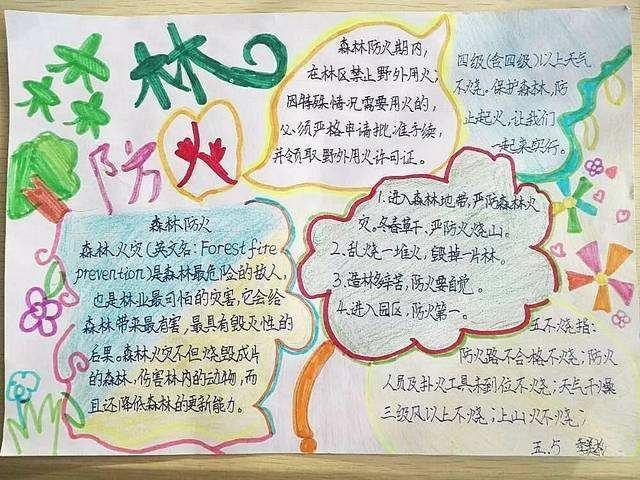 森林防火
森林防火期内，
在林区禁止野外用火；
因特殊情况需要用火的，
必须严格申请批准手续，
并领取野外用火许可证。
四级(含四级)以上天气
不烧。保护森林，防
止起火，让我们
一起来实行。
森林防火
森林火灾(英文名：Forest fire
prevention)是森林最危险的敌人，
也是林业最可怕的灾害，它会给
森林带来最有害，最具有毁灭性的
后果。森林火灾不但烧毁成片
的森林，伤害林内的动物，而
且还降低森林的更新能力。
1.进入森林地带，严防森林火
灾。冬春草干，严防火烧山。
2.乱烧一堆火，毁掉一片林。
3.造林多辛苦，防火要自觉。
4.进入园区，防火第一。
五不烧指：
防火路不合格不烧；防火
人员及扑火工具未到位不烧；天气干燥
三级风以上不烧；上山火不烧；
五.5